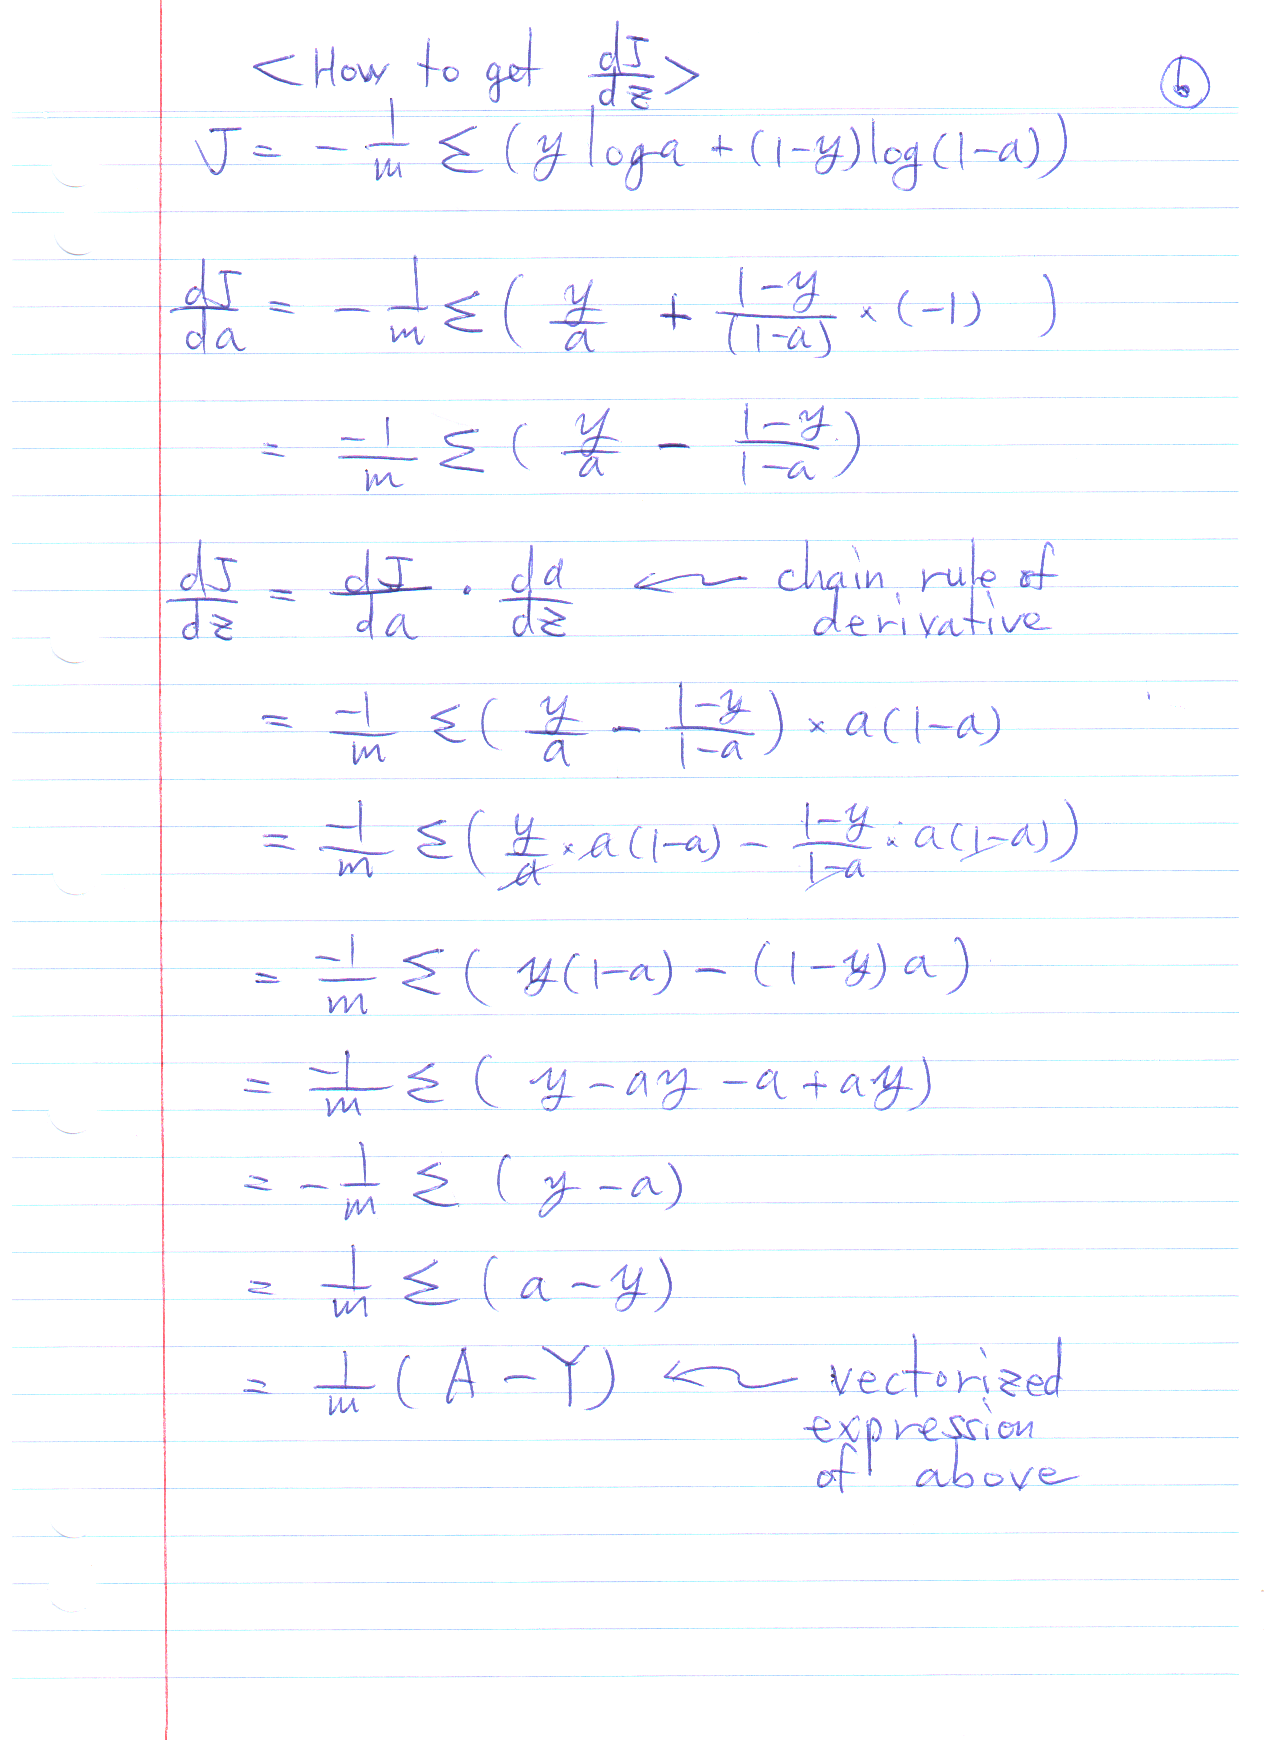 <How to get dJ/dz> 6
J = -1/m Σ(y log a + (1-y)log(1-a))
dJ/da = -1/m Σ( y/a + 1-y/(1-a) × (-1) )
= -1/m Σ( y/a - 1-y/1-a )
dJ/dz = dJ/da · da/dz ← chain rule of
derivative
= -1/m Σ( y/a - 1-y/1-a ) × a(1-a)
= -1/m Σ( y/a × a(1-a) - 1-y/1-a · a(1-a) )
= -1/m Σ( y(1-a) - (1-y)a )
= -1/m Σ( y - ay - a + ay )
= -1/m Σ( y - a )
= 1/m Σ( a - y )
= 1/m ( A - Y ) ← vectorized
expression
of above